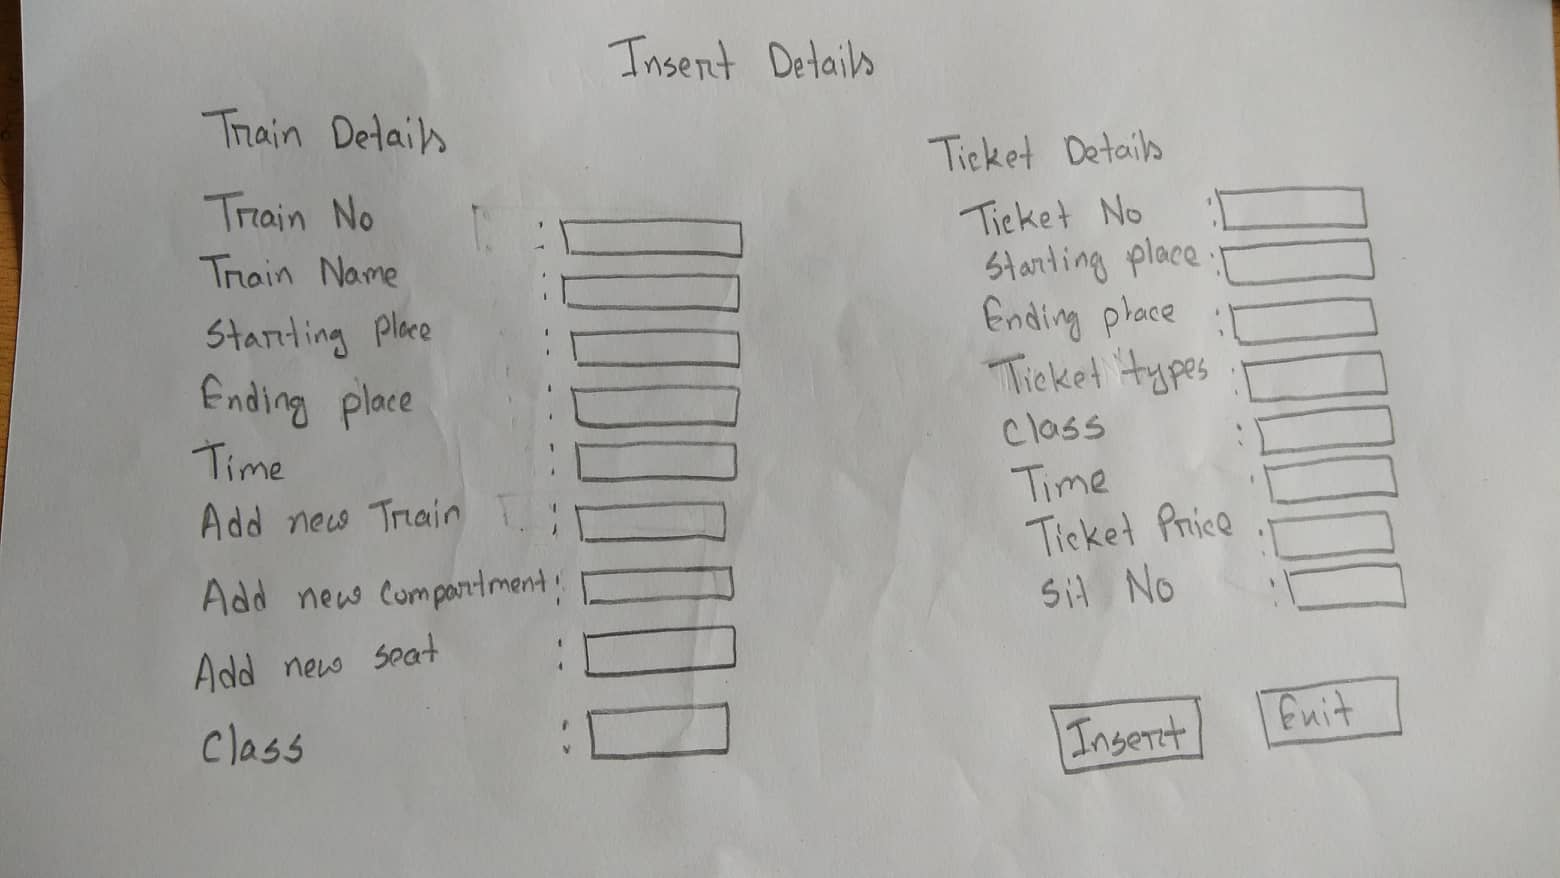 Insert Details
Train Details
Train No :
Train Name :
Starting place :
Ending place :
Time :
Add new Train :
Add new compartment :
Add new seat :
Class :
Ticket Details
Ticket No :
Starting place :
Ending place :
Ticket types :
Class :
Time :
Ticket Price :
Sit No :
Insert
Exit